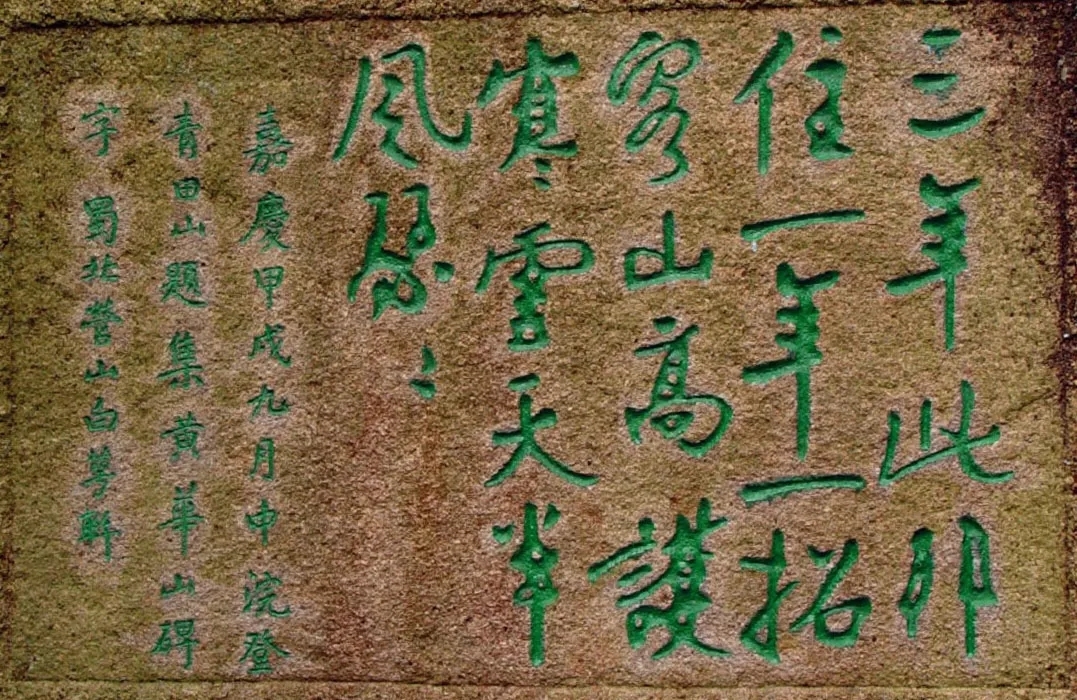 三年此卯
住一年一招
客山高護
寒雲天半
風琴〻
嘉慶甲戌九月申浣登
青田山題集黃華山碑
字蜀北營山白萼聯